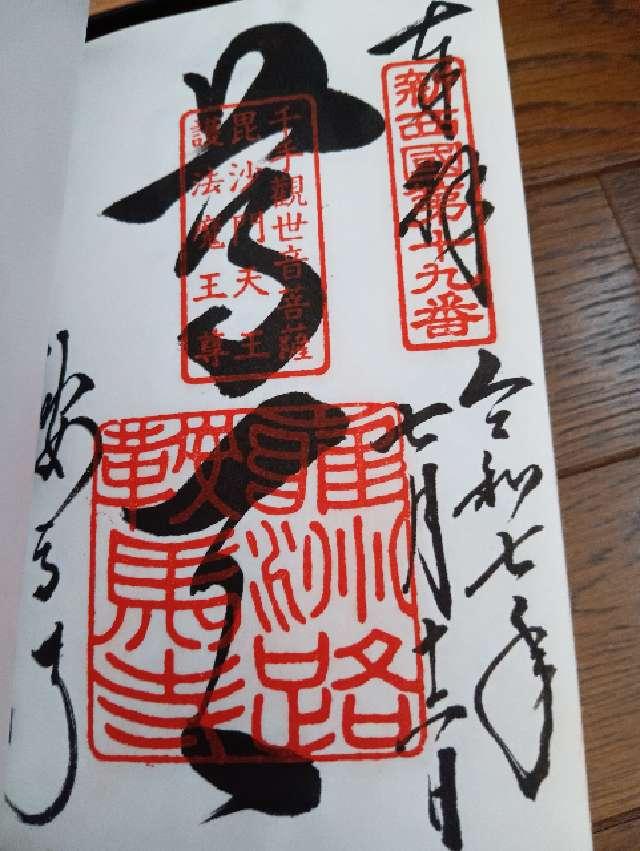 奉拝
新西國第十九番
令和七年
七月
尊天
千手觀世音菩薩
毘沙門天王
護法魔王尊
鞍馬寺
鞍馬寺